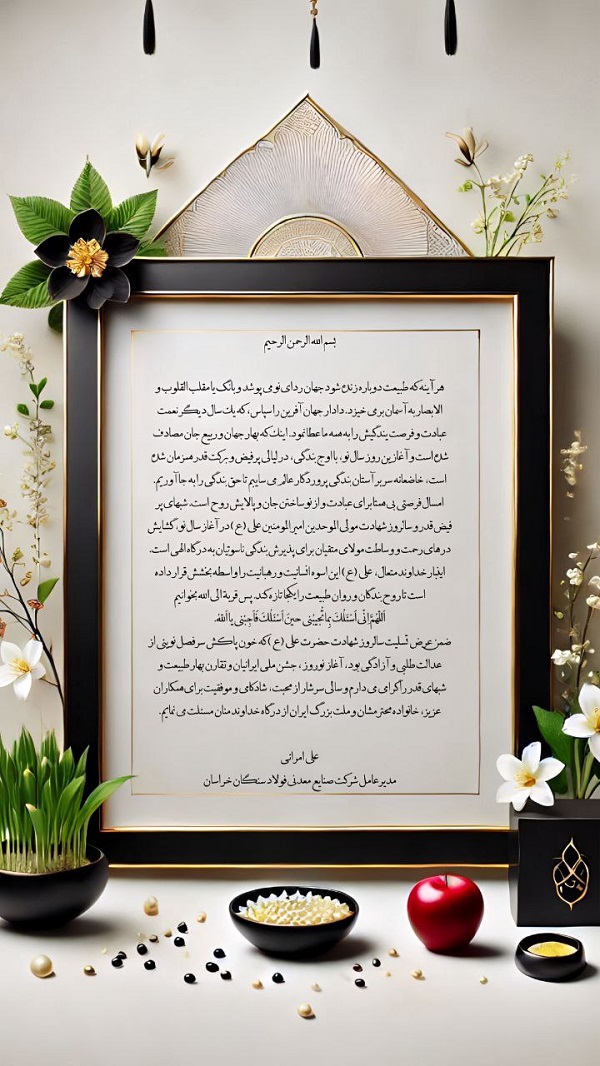 بسم الله الرحمن الرحیم
هر آینه که طبیعت دوباره زنده شود جهان ردای نو می پوشد و بانگ یا مقلب القلوب و
الابصار به آسمان برمی خیزد. دادار جهان آفرین را سپاس، که یک سال دیگر نعمت
عبادت و فرصت بندگیش را به همه ما عطا نمود. اینک که بهار جهان و ربیع جان مصادف
شده است و آغازین روز سال نو، با اوج بندگی، در لیالی پرفیض و برکت قدر همزمان شده
است، خاضعانه سر بر آستان بندگی پروردگار عالم می ساییم تا حق بندگی را به جا آوریم.
امسال فرصتی بی همتا برای عبادت و از نو ساختن جان و پالایش روح است. شبهای پر
فیض قدر و سالروز شهادت مولی الموحدین امیرالمومنین علی (ع) در آغاز سال نو گشایش
درهای رحمت و وساطت مولای متقیان برای پذیرش بندگی ناسوتیان به درگاه الهی است.
اینبار خداوند متعال، علی (ع) این اسوه انسانیت و رهبانیت را واسطه بخشش قرار داده
است تا روح بندگان و روان طبیعت را یکجا تازه کند. پس قربة الی الله بخوانیم
اَللّهُمَّ اِنّی اَسْئَلُکَ بِما تُجیبُنی حینَ اَسْئَلُکَ فَاَجِبْنی یا اَللهُ.
ضمن عرض تسلیت سالروز شهادت حضرت علی (ع) که خون پاکش سرفصل نوینی از
عدالت طلبی و آزادگی بود، آغاز نوروز، جشن ملی ایرانیان و تقارن بهار طبیعت و
شبهای قدر را گرامی می دارم و سالی سرشار از محبت، شادکامی و موفقیت برای همکاران
عزیز، خانواده محترمشان و ملت بزرگ ایران از درگاه خداوند منان مسئلت می نمایم.
علی امرانی
مدیر عامل شرکت صنایع معدنی فولاد سنگان خراسان